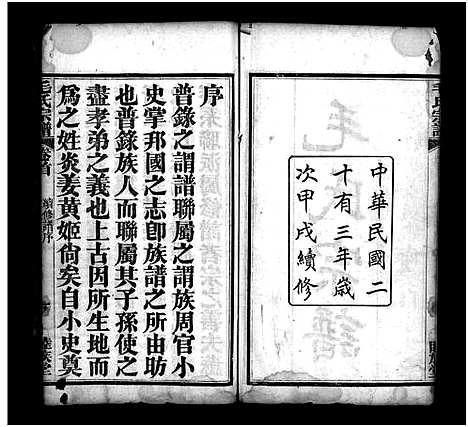 中華民國二
十有三年歲
次甲戌續修
毛氏宗譜
序
普錄之謂譜聯屬之謂族周官小
史掌邦國之志卽族譜之所由昉
也普錄族人而聯屬其子孫使之
盡孝弟之義也上古因所生地而
爲之姓炎姜黃姬尙矣自小史奠
毛氏宗譜
卷首
續修譜序
睦族堂